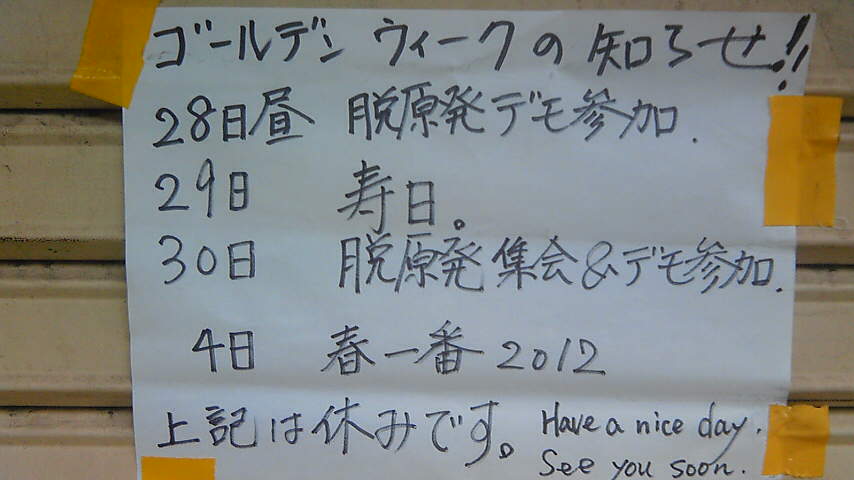 ゴールデン ウィークの知らせ!!
28日昼 脱原発デモ参加.
29日 寿日。
30日 脱原発集会&デモ参加.
4日 春一番 2012
上記は休みです。 Have a nice day.
See you soon.